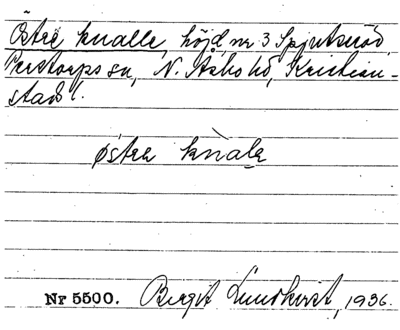 Östre knalle, höjd, nr 3 Spjutseröd,
Perstorps sn, N. Åsbo hd, Kristian-
stad l.
östre knàlə
Nr 5500. Birgit Lundkvist, 1936.